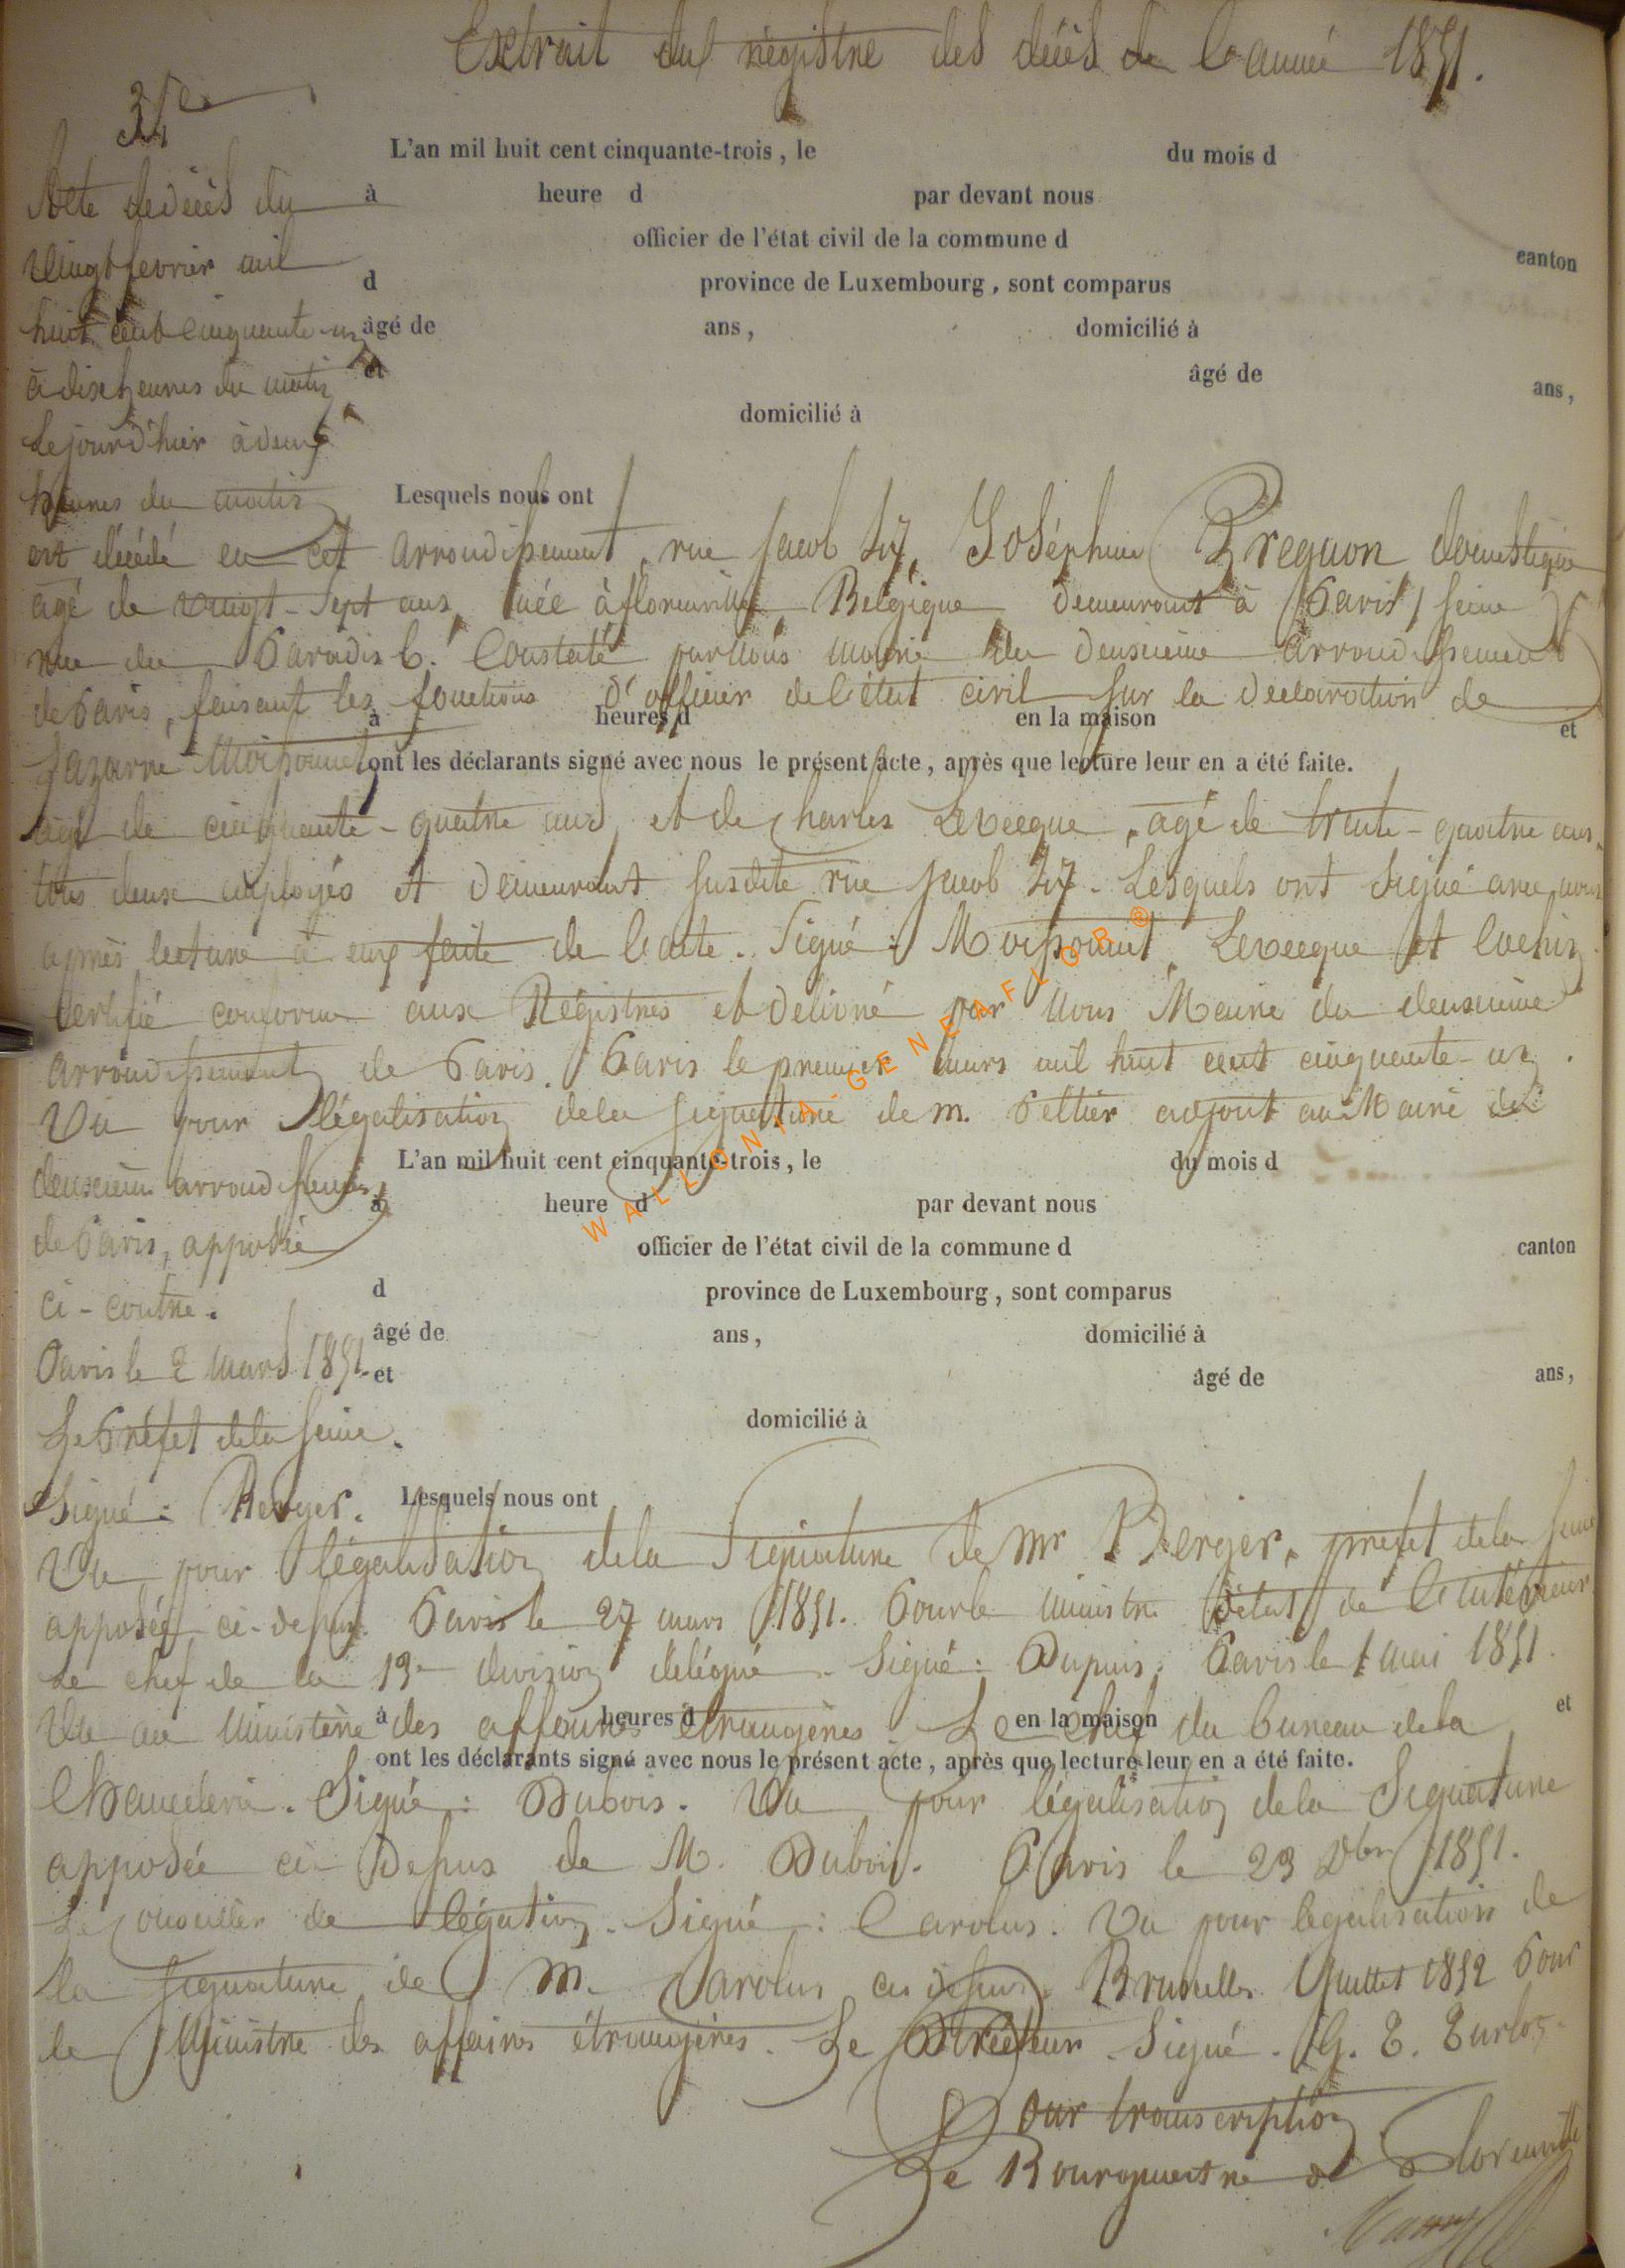 Extrait du registre des décès de l'année 1851.
L'an mil huit cent cinquante-trois, le du mois d
à heure d par devant nous
officier de l'état civil de la commune d canton
d province de Luxembourg, sont comparus
âgé de ans, domicilié à
et âgé de ans,
domicilié à
Acte de décès du
vingt fevrier mil
huit cent cinquante-un
à dix heures du matin
Le jour d'hier à deux
heures du matin Lesquels nous ont
est décédé en cet arrondissement, rue Jacob 47, Joséphine domestique
agé de vingt-sept ans, née à florenville, Belgique, demeurant à Paris, seine
rue du Paradis 6. Constaté par nous maire du deuxieme arrondissement
de Paris, faisant les fonctions d'officier de l'état civil sur la declaration de
à heures d en la maison et
Lazarre Moissonnet
ont les déclarants signé avec nous le présent acte, après que lecture leur en a été faite.
agé de cinquante-quatre ans, et de Charles Levecque, agé de trente-quatre ans,
tous deux employés et demeurant susdite rue Jacob 47. Lesquels ont signé avec nous
après lecture à eux faite de l'acte. Signé: Moissonnet, Levecque et
Certifié conforme aux Régistres et délivré par Nous Maire du deuxieme
arrondissement de Paris. Paris le premier mars mil huit cent cinquante-un.
Vu pour légalisation de la signature de m. Peltier adjoint au Maire du
deuxieme arrondissement
de Paris, apposée
ci-contre.
Paris le 2 mars 1851.
Le Préfet de la Seine.
Signé: Berger.
L'an mil huit cent cinquante-trois, le du mois d
à heure d par devant nous
officier de l'état civil de la commune d canton
d province de Luxembourg, sont comparus
âgé de ans, domicilié à
et âgé de ans,
domicilié à
Lesquels nous ont
Vu pour légalisation de la signature de mr Berger, préfet de la Seine
apposée ci-dessus. Paris le 27 mars 1851. Pour le ministre de l'Intérieur
Le chef de la 1re division délégué. Signé: Dupuis. Paris le 1 mai 1851.
Vu au Ministère des affaires étrangères. Le chef du bureau de la
à heures d en la maison et
ont les déclarants signé avec nous le présent acte, après que lecture leur en a été faite.
Chancelerie. Signé: Dubois. Vu pour légalisation de la Signature
apposée ci-Dessus de M. Dubois. Paris le 23 Xbre 1851.
Le conseiller de légation. Signé: Carolus. Vu pour legalisation de
la signature de M. Carolus ci-dessus. Bruxelles Juillet 1852 Pour
le Ministre des affaires étrangères. Le Directeur. Signé.
Pour transcription
Le Bourgmestre de Florenville
WALLONIA GENEAFLOR®